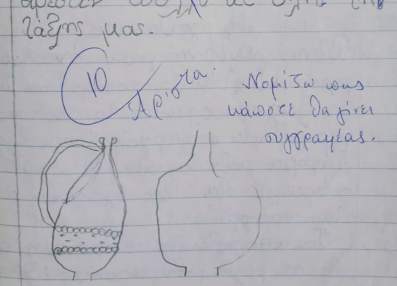 τάξης μας.
10
Άριστα.
Νομίζω πως
κάποτε θα γίνει
συγγραφέας.